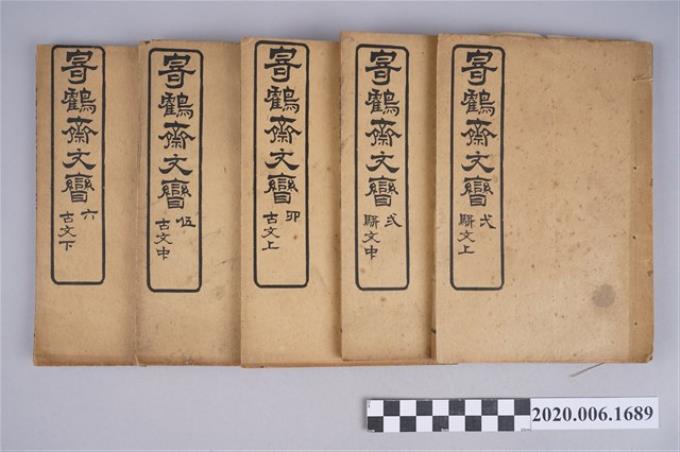 寄鶴齋文矕
弌
駢文上
寄鶴齋文矕
弍
駢文中
寄鶴齋文矕
卯
古文上
寄鶴齋文矕
伍
古文中
寄鶴齋文矕
六
古文下
2020.006.1689